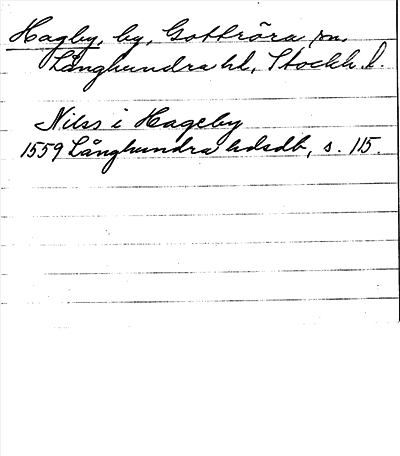 Hagby, by, Gottröra sn,
Långhundra hd, Stockh. l.
Nilss i Hageby
1559 Långhundra hdsdb, s. 115.